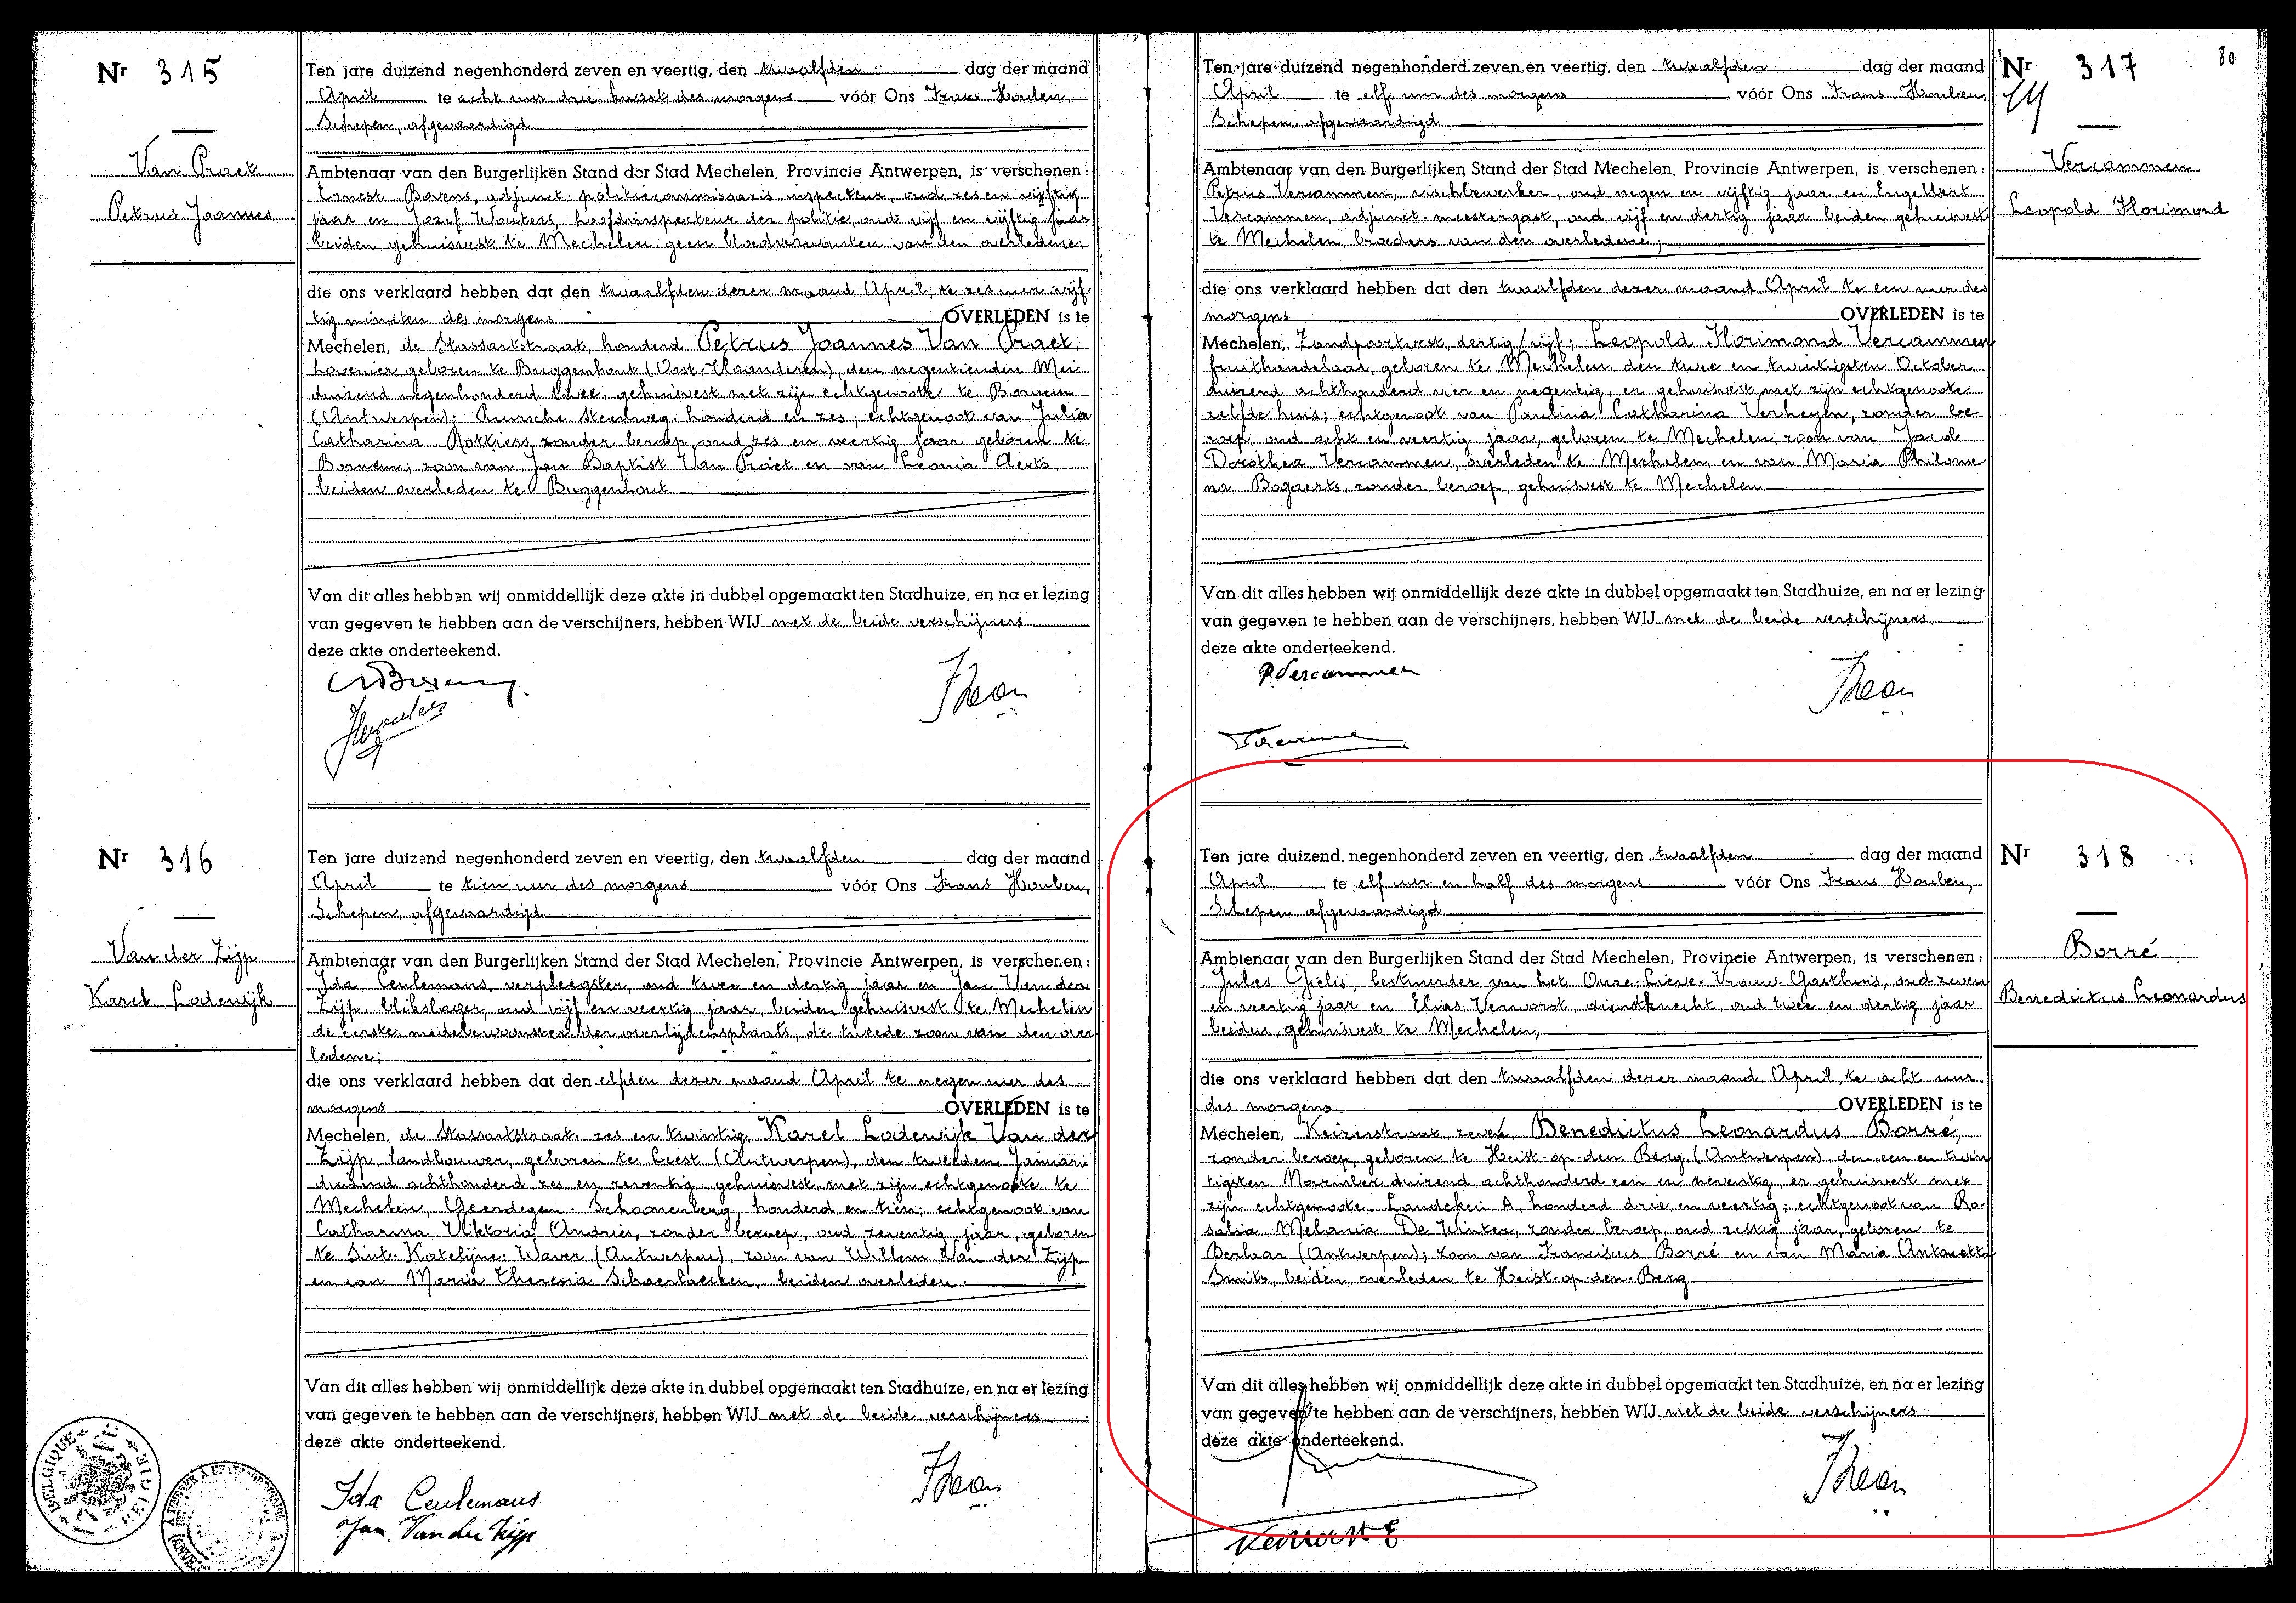 Nr 315
Van Praet
Petrus Joannes
Ten jare duizend negenhonderd zeven en veertig, den twaalfden dag der maand
April te acht uur drie kwart des morgens vóór Ons Frans Houben,
Schepen, afgevaardigd
Ambtenaar van den Burgerlijken Stand der Stad Mechelen, Provincie Antwerpen, is verschenen:
Ernest Bovens, adjunct-politiecommissaris inspecteur, oud zes en vijftig
jaar en Jozef Wouters, hoofdinspecteur der politie, oud vijf en vijftig jaar
beiden gehuisvest te Mechelen geen bloedverwanten van den overledene;
die ons verklaard hebben dat den twaalfden dezer maand April, te zes uur vijf-
tig minuten des morgens OVERLEDEN is te
Mechelen, de Stassartstraat, honderd Petrus Joannes Van Praet,
hovenier, geboren te Buggenhout (Oost-Vlaanderen), den negentienden Mei
duizend negenhonderd twee, gehuisvest met zijn echtgenoote te Bornem
(Antwerpen); Puursche Steenweg, honderd en zes; echtgenoot van Julia
Catharina Rottiers, zonder beroep, oud zes en veertig jaar geboren te
Bornem; zoon van Jan Baptist Van Praet en van Leonia Aerts,
beiden overleden te Buggenhout.
Van dit alles hebben wij onmiddellijk deze akte in dubbel opgemaakt ten Stadhuize, en na er lezing
van gegeven te hebben aan de verschijners, hebben WIJ met de beide verschijners
deze akte onderteekend.
Nr 316
Van der Zijp
Karel Lodewijk
Ten jare duizend negenhonderd zeven en veertig, den twaalfden dag der maand
April te tien uur des morgens vóór Ons Frans Houben,
Schepen, afgevaardigd
Ambtenaar van den Burgerlijken Stand der Stad Mechelen, Provincie Antwerpen, is verschenen:
Ida Ceulemans, verpleegster, oud twee en dertig jaar en Jan Van der
Zijp, blikslager, oud vijf en veertig jaar, beiden gehuisvest te Mechelen
de eerste medebewoonster der overlijdensplaats, de tweede zoon van den over
ledene;
die ons verklaard hebben dat den elfden dezer maand April te negen uur des
morgens OVERLEDEN is te
Mechelen, de Stassartstraat, zes en twintig, Karel Lodewijk Van der
Zijp, landbouwer, geboren te Leest (Antwerpen), den tweeden Januari
duizend achthonderd zes en zeventig, gehuisvest met zijn echtgenoote te
Mechelen, Geerdegen-Schoonenberg, honderd en tien; echtgenoot van
Catharina Viktoria Andries, zonder beroep, oud zeventig jaar, geboren
te Sint-Katelijne-Waver (Antwerpen), zoon van Willem Van der Zijp
en van Maria Theresia Schaerlaecken, beiden overleden.
Van dit alles hebben wij onmiddellijk deze akte in dubbel opgemaakt ten Stadhuize, en na er lezing
van gegeven te hebben aan de verschijners, hebben WIJ met de beide verschijners
deze akte onderteekend.
Ida Ceulemans
Jan Van der Zijp
BELGIQUE
80
Nr 317
Vercammen
Leopold Florimond
Ten jare duizend negenhonderd zeven en veertig, den twaalfden dag der maand
April te elf uur des morgens vóór Ons Frans Houben,
Schepen, afgevaardigd
Ambtenaar van den Burgerlijken Stand der Stad Mechelen, Provincie Antwerpen, is verschenen:
Petrus Vercammen, vischbewerker, oud negen en vijftig jaar en Engelbert
Vercammen, adjunct-meestergast, oud vijf en dertig jaar beiden gehuisvest
te Mechelen, broeders van den overledene;
die ons verklaard hebben dat den twaalfden dezer maand April te een uur des
morgens OVERLEDEN is te
Mechelen, Zandpoortvest, dertig/vijf; Leopold Florimond Vercammen
fruithandelaar, geboren te Mechelen den twee en twintigsten October
duizend achthonderd vier en negentig, er gehuisvest met zijn echtgenoote
zelfde huis; echtgenoot van Paulina Catharina Verheyen, zonder be-
roep, oud acht en veertig jaar, geboren te Mechelen; zoon van Jacob
Dorothea Vercammen, overleden te Mechelen en van Maria Philome
na Bogaerts, zonder beroep, gehuisvest te Mechelen.
Van dit alles hebben wij onmiddellijk deze akte in dubbel opgemaakt ten Stadhuize, en na er lezing
van gegeven te hebben aan de verschijners, hebben WIJ met de beide verschijners
deze akte onderteekend.
P. Vercammen
Nr 318
Borré
Benedictus Leonardus
Ten jare duizend negenhonderd zeven en veertig, den twaalfden dag der maand
April te elf uur en half des morgens vóór Ons Frans Houben,
Schepen afgevaardigd
Ambtenaar van den Burgerlijken Stand der Stad Mechelen, Provincie Antwerpen, is verschenen:
Jules Gielis, bestuurder van het Onze-Lieve-Vrouw-Gasthuis, oud zeven
en veertig jaar en Elias Vervorst, dienstknecht, oud twee en dertig jaar
beiden, gehuisvest te Mechelen,
die ons verklaard hebben dat den twaalfden dezer maand April, te acht uur
des morgens OVERLEDEN is te
Mechelen, Keizerstraat zeven, Benedictus Leonardus Borré,
zonder beroep, geboren te Heist-op-den-Berg (Antwerpen), den een en twin
tigsten November duizend achthonderd een en zeventig, er gehuisvest met
zijn echtgenoote, Landekeri A, honderd drie en veertig; echtgenoot van Ro-
salia Melania De Winter, zonder beroep, oud zestig jaar, geboren te
Berlaar (Antwerpen); zoon van Franciscus Borré en van Maria Antonetta
Smits, beiden overleden te Heist-op-den-Berg
Van dit alles hebben wij onmiddellijk deze akte in dubbel opgemaakt ten Stadhuize, en na er lezing
van gegeven te hebben aan de verschijners, hebben WIJ met de beide verschijners
deze akte onderteekend.
Vervorst E